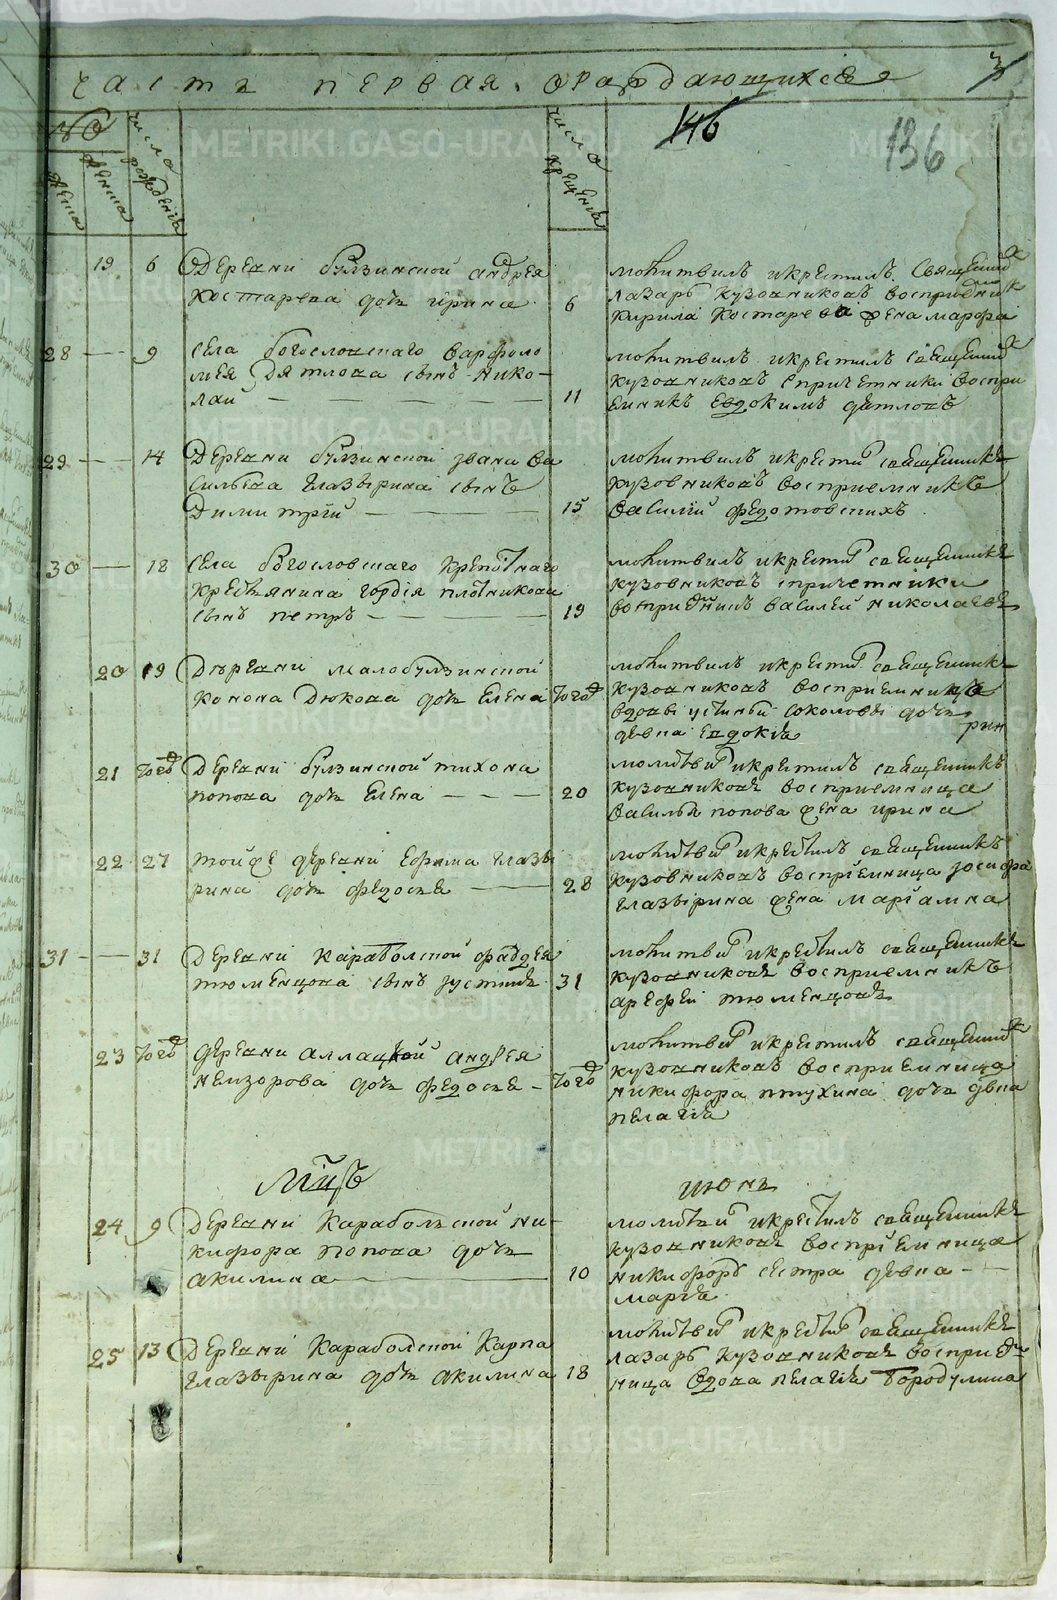 часть первая ораждающихся
3
146
136
№
числа рождения
числа крещения
мужеска
женска
19 6 Деревни булзинской андрея
костарева дочь ирина
6
молитвилъ икрестилъ Священникъ
лазарь кузовниковъ восприемник
кирила костарева жена марфа
28 — 9 села богословскаго варфоло
мея дятлова сынъ нико-
лай
11
молитвилъ икрестилъ священникъ
кузовниковъ спричетники воспри
емникъ евдокимъ дятловъ
29 — 14 Деревни булзинской ивана ва
сильева глазырина сынъ
Димитрiй
15
молитвилъ икрести священникъ
кузовниковъ восприемникъ
василiй федотовскихъ
30 — 18 села богословскаго
крестьянина гордiя плотникова
сынъ петръ
19
молитвилъ икрестил священникъ
кузовниковъ спричетники
василей николаевъ
20 19 Деревни малобулзинской
конона Дюкова дочь елена
тогож
молитвилъ икрести священникъ
кузовниковъ восприемница
вдовы устиньи соколовы дочь
девка евдокiя
21 тогож Деревни булзинской тихона
попова дочь елена
20
молитвил икрестилъ священникъ
кузовниковъ восприемница
василья попова жена ирина
22 27 тойже деревни ефима глазы
рина дочь федосья
28
молитвил икрестилъ священникъ
кузовниковъ воспрiемница iосифа
глазырина жена марiамна
31 — 31 Деревни караболской фадdea
тюменцова сынъ iустинъ
31
молитвил икрестилъ священникъ
кузовниковъ восприемникъ
арефей тюменцовъ
23 тогож деревни аллацкой андрея
невзорова дочь федосья
тогож
молитвил икрестилъ священникъ
кузовниковъ восприемница
никифора птухина дочь девка
пелагiя
мцъ
июнь
24 9 Деревни Караболской ни-
кифора попова дочь
акилина
10
молитвил икрестилъ священникъ
кузовниковъ воспрiемница
никифора сестра девка
марiя
25 13 Деревни Караболской Карпа
глазырина дочь акилина
18
молитвил икрестил священникъ
лазарь кузовниковъ восприем
ница вдова пелагiя бородулина